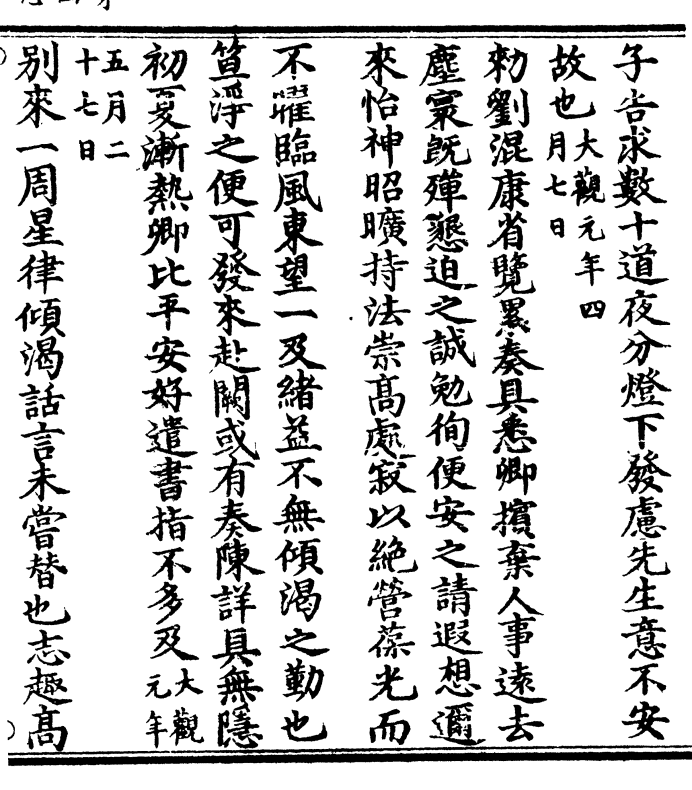 子告求數十道夜分燈下發慮先生意不安
故也大觀元年四月七日
勑劉混康省覽累奏具悉卿擯棄人事遠去
塵寰旣殫懇迫之誠勉徇便安之請遐想邇
來怡神昭曠持法崇髙處寂以絶營葆光而
不燿臨風東望一及緒益不無傾渴之勤也
笡淨之便可發來赴闕或有奏陳詳具無隱
初夏漸熱卿比平安好遣書指不多及大觀元年
五月二十七日
别來一周星律傾渴話言未嘗替也志趣髙